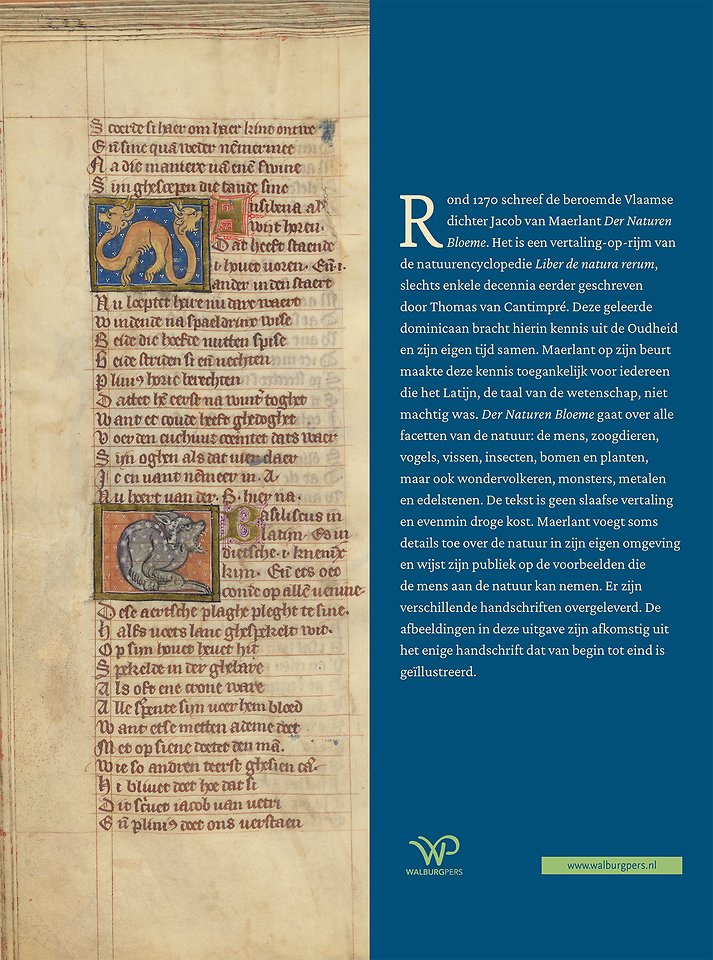 S coerde si haer om haer kint ontwe
E n sine qua weder nemermee
N a die maniere van enen swine
S ijn ghescepen die tande sine
A nsibena als
wijt horen
D at heeft staende
i hovet voren. En i
ander in den staert
N u loepter here nu dare waert
W indende na spaeldriner wise
B eide die hoefde nutten spise
B eide striden si ende vechten
P linius horic berechten
D attet eerst na wintr toghet
W ant et coude heeft ghedoghet
V oer den cuchuus coemtet dats waer
S ijn oghen als dat vier claer
I c en vant nemeer in. A
N u heert van der. B. hier na.
B asiliscus in
latijn. Es in
dietsche i
kijn. Ets oec
conic op alle venine
D ese aertsche plaghe pleght te sine
H alfs voets lanc ghespekelt wit.
O p sijn hovet hevet hit
S pekelde in der ghelare
A ls oft ene crone ware
A lle sijn voer hem bloed
W ant etse metten ademe doet
M et op siene doetet den man.
W ie so andren teerst ghesien can.
H i blivet doet hoe dat si
D it scrivet iacob van vetri
E n plinius doet ons verstaen
Rond 1270 schreef de beroemde Vlaamse
dichter Jacob van Maerlant Der Naturen
Bloeme. Het is een vertaling-op-rijm van
de natuurencyclopedie Liber de natura rerum,
slechts enkele decennia eerder geschreven
door Thomas van Cantimpré. Deze geleerde
dominicaan bracht hierin kennis uit de Oudheid
en zijn eigen tijd samen. Maerlant op zijn beurt
maakte deze kennis toegankelijk voor iedereen
die het Latijn, de taal van de wetenschap, niet
machtig was. Der Naturen Bloeme gaat over alle
facetten van de natuur: de mens, zoogdieren,
vogels, vissen, insecten, bomen en planten,
maar ook wondervolkeren, monsters, metalen
en edelstenen. De tekst is geen slaafse vertaling
en evenmin droge kost. Maerlant voegt soms
details toe over de natuur in zijn eigen omgeving
en wijst zijn publiek op de voorbeelden die
de mens aan de natuur kan nemen. Er zijn
verschillende handschriften overgeleverd. De
afbeeldingen in deze uitgave zijn afkomstig uit
het enige handschrift dat van begin tot eind is
geïllustreerd.
WP
WALBURGPERS
www.walburgpers.nl